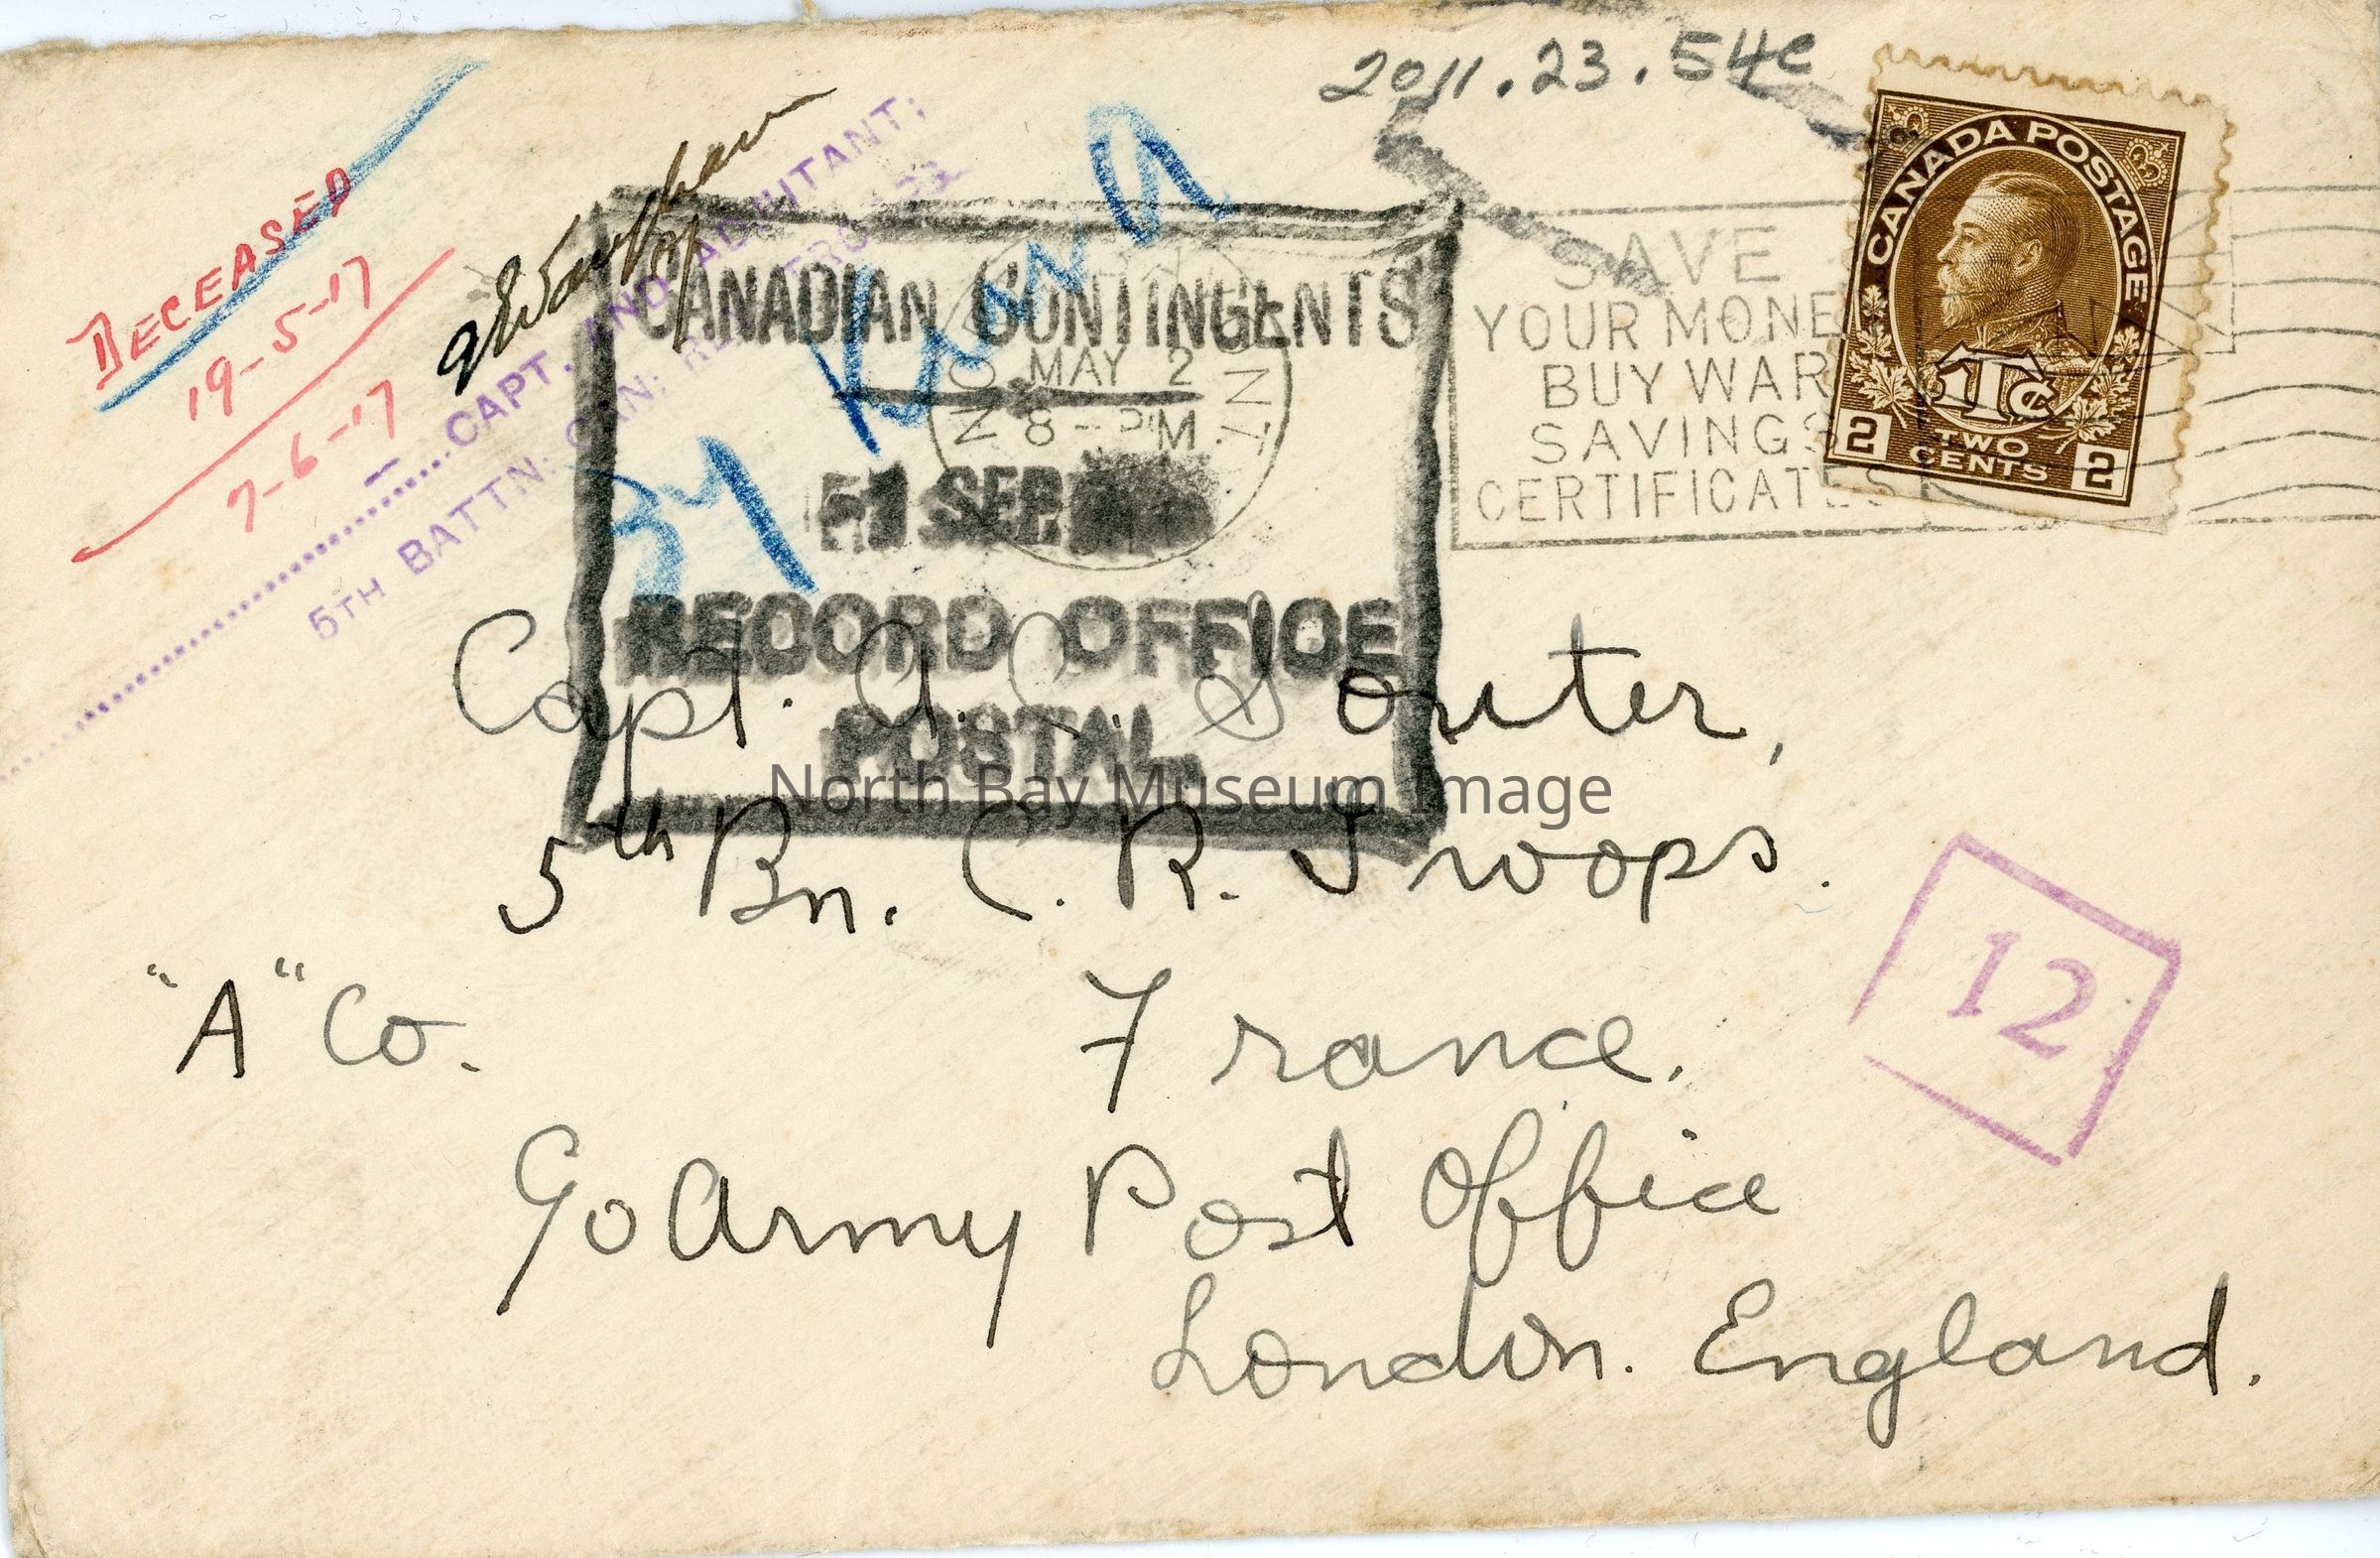 2011.23.54c
DECEASED
19-5-17
7-6-17
CAPT. AND ADJUTANT;
5TH BATTN: CAN:
CANADIAN CONTINGENTS
SEP
RECORD OFFICE
POSTAL
MAY 2
8 - PM
NO
ONT
SAVE
YOUR MONE
BUY WAR
SAVINGS
CERTIFICATES
CANADA POSTAGE
1Tc
2 TWO CENTS 2
Capt. A. C. Souter,
5th Bn. C. R. Troops.
"A" Co. France.
12
Go Army Post Office
London. England.
North Bay Museum Image